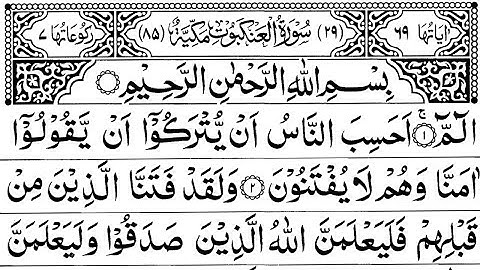 اٰيَاتُهَا ٦٩ (٢٩) سُوْرَةُ الْعَنْكَبُوْتِ مَكِّيَّةٌ (٨٥) رُكُوْعَاتُهَا ٧
بِسْمِ اللّٰهِ الرَّحْمٰنِ الرَّحِيْمِ
الٓمّٓ ۚ‏﴿١﴾ اَحَسِبَ النَّاسُ اَنْ يُّتْرَكُوْۤا اَنْ يَّقُوْلُوْۤا
اٰمَنَّا وَهُمْ لَا يُفْتَنُوْنَ ﴿٢﴾ وَلَقَدْ فَتَنَّا الَّذِيْنَ مِنْ
قَبْلِهِمْ فَلَيَعْلَمَنَّ اللّٰهُ الَّذِيْنَ صَدَقُوْا وَلَيَعْلَمَنَّ